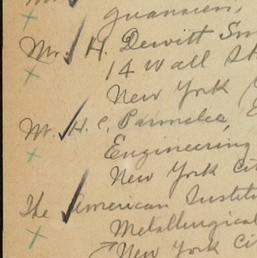 Mr.
Guanacevi,
Mr. H. Dewitt Sm
14 Wall St
New York
Mr. H. C. Parmelee, E
Engineering
New York Cit
The American Institu
Metallurgical
New York Ci